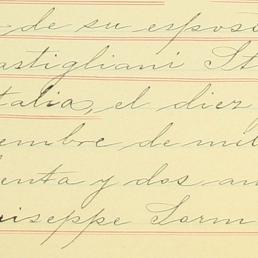 de su esposo
astigliani St
talia, el diez
embre de mil
enta y dos an
iseppe Sorm